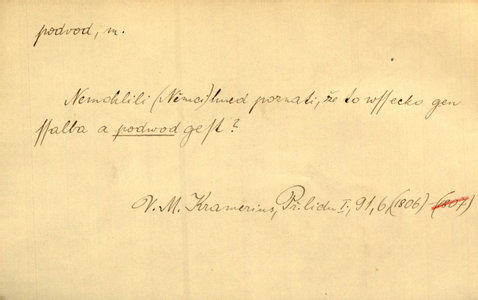 podvod, m.
Nemohlili (Němci) hned poznati, že to wssecko gen
ssalba a podwod gest?
V. M. Kramerius, Př. lidu I., 91, 6, (1806) (1807)